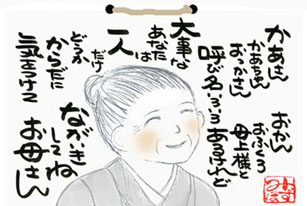 かあさん
かあちゃん
おっかさん
おかん
おふくろ
母上様と
呼び名いろいろ
あるけれど
大事な
あなたは
一人
だけ
どうか
からだに
気をつけて
ながいき
してね
お母さん